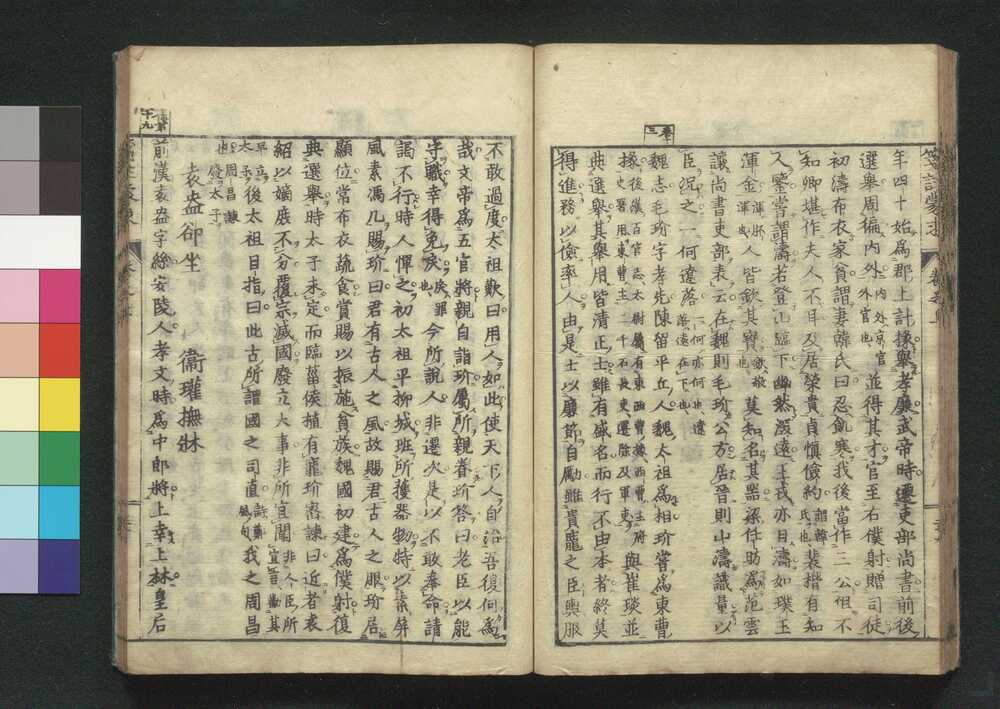 箋註蒙求
年四十始爲郡上計掾舉孝廉武帝時遷吏部尚書前後
選舉周徧内外内外京官外官也並得其才官至右僕射贈司徒
初濤布衣家貧謂妻韓氏曰忍飢寒我後當作三公但不
知卿堪作夫人不耳及居榮貴貞愼儉約謂韓氏也裴楷有知
人鑒嘗謂濤若登山臨下幽然深遠王戎亦目濤如璞玉
渾金人皆欽其寶莫知名其器梁任昉爲范雲
讓尚書吏部表云在魏則毛玠公方居晉則山濤識量以
臣況之一何遼落
魏志毛玠字孝先陳留平丘人魏太祖爲相玠嘗爲東曹
掾後漢百官志太尉屬有東西曹掾西曹主府史署用東曹主二千石長吏遷除及軍吏與崔琰並
典選舉其舉用皆清正士雖有盛名而行不由本者終莫
得進務以儉率人由是士以廉節自勵雖貴寵之臣輿服
不敢過度太祖歎曰用人如此使天下人自治吾復何爲
哉文帝爲五官將親自詣玠屬所親眷玠答曰老臣以能
守職幸得免戾戾罪也今所說人非遷次是以不敢奉命請
謁不行時人憚之初太祖平柳城班所獲器物特以素屏
風素馮几賜玠曰君有古人之風故賜君古人之服玠居
顯位常布衣蔬食賞賜以振施貧族魏國初建爲僕射復
典選舉時太子未定而臨菑侯植有寵玠密諫曰近者袁
紹以嫡庶不分覆宗滅國廢立大事非所宜聞非人臣所宜言勸其
早立太子也後太祖目指曰此古所謂國之司直我之周昌
周昌諫廢太子
袁盎卻坐　衞瓘撫牀
前漢袁盎字絲安陵人孝文時爲中郎將上幸上林皇后